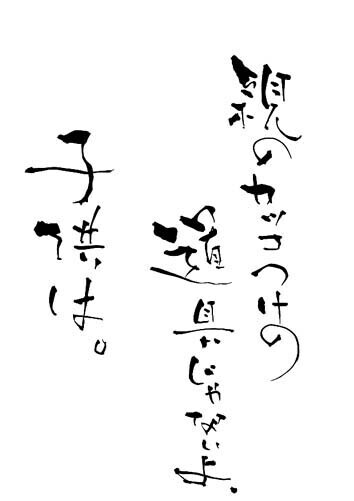 親のカッコつけの
道具じゃないよ。
子供は。